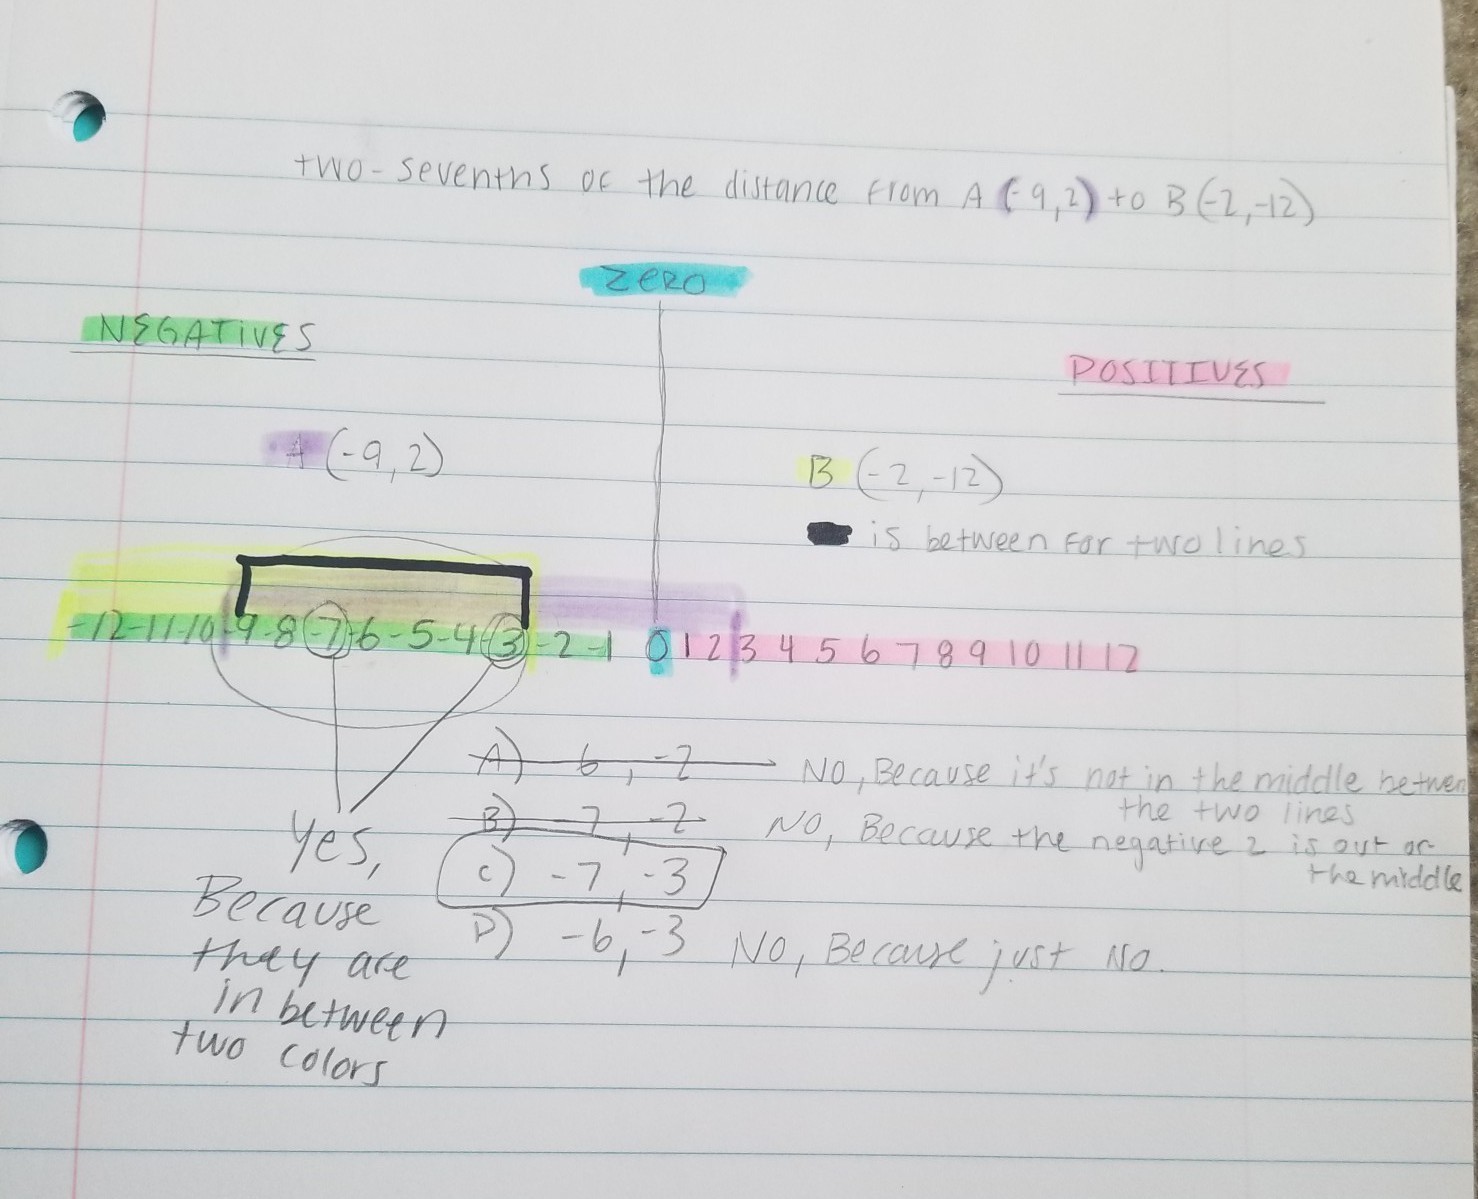 two-sevenths of the distance from A(-9,2) to B(-2,-12)
ZERO
NEGATIVES
POSITIVES
A (-9,2)
B (-2,-12)
is between for two lines
-12 -11 -10 -9 -8 -7 -6 -5 -4 -3 -2 -1 0 1 2 3 4 5 6 7 8 9 10 11 12
A) 6, -2 NO, Because it's not in the middle between
the two lines
B) -7, -2 NO, Because the negative 2 is out of
the middle
C) -7, -3
D) -6, -3 NO, Because just NO.
Yes,
Because
they are
in between
two colors